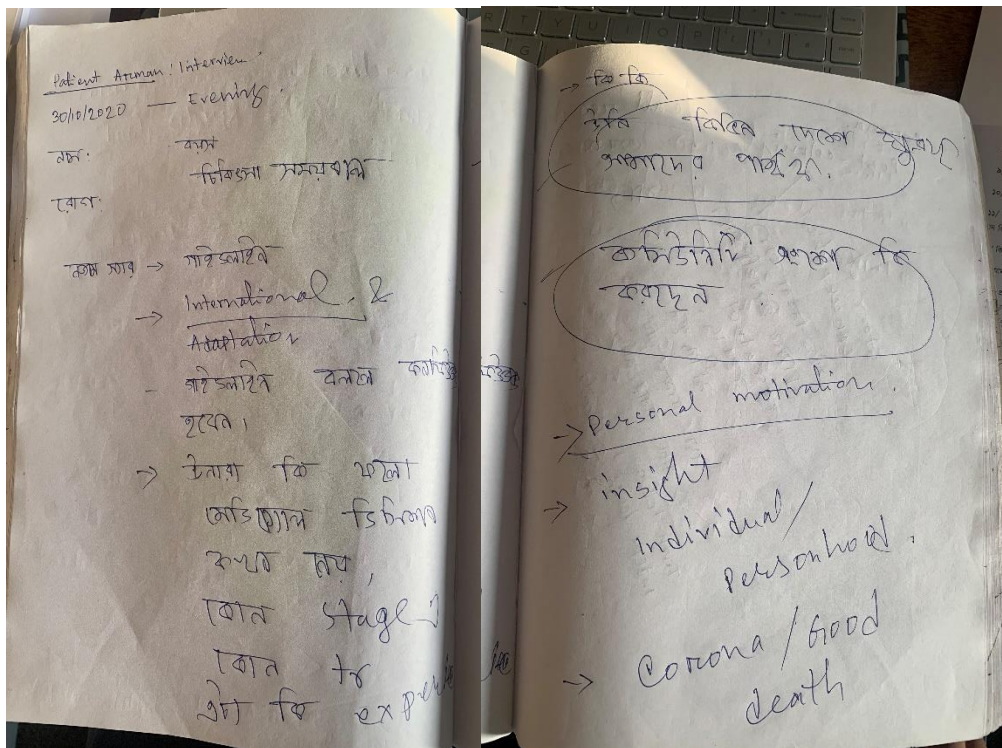 Patient Arman: Interview
30/10/2020 — Evening.
নাম: বয়স
চিকিৎসা সময়কাল
রোগ:
→ গাইডলাইন
→ International . &
Adaptation
- গাইডলাইন বলতে
হবেন।
→ উনারা কি ফলো
মেডিক্যাল ডিসিশন
কখন নেয়,
কোন stage
কোন tr
এটা কি
→ কি কি
উনি বিভিন্ন দেশে
আমাদের পার্থক্য.
কমিউনিটি এংগেজ কি
করছেন
→ Personal motivation.
→ insight
individual/
personhood.
→ Corona / Good
death